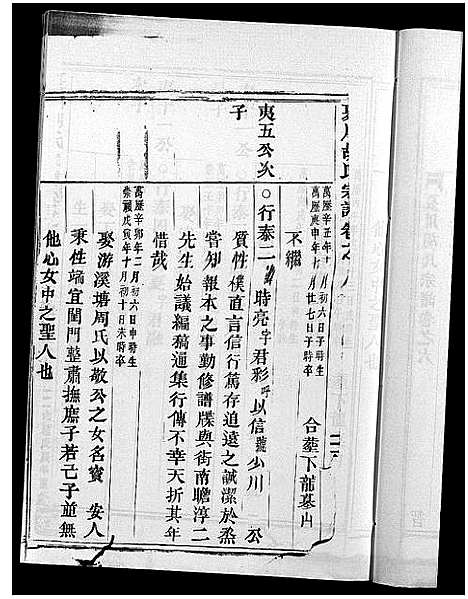 萬曆辛丑年十月初六日子時生
萬曆庚申年七月廿七日子時卒
合葬下龍墓山
不繼
夷五公次子
○行泰二
時亮字君彩呼以信號少川
公
質性樸直言信行篤存追遠之誠潔於烝
嘗知報本之事勤修譜牒與街南瞻淳二
先生始議編稿通集行傳不幸夭折其年
惜哉
萬曆辛卯年二月初六日申時生
崇禎戊寅年十月初十日未時卒
娶游溪塘周氏以敬公之女名賓
安人
秉性端宜閨門整肅撫庶子若己子並無
他心女中之聖人也